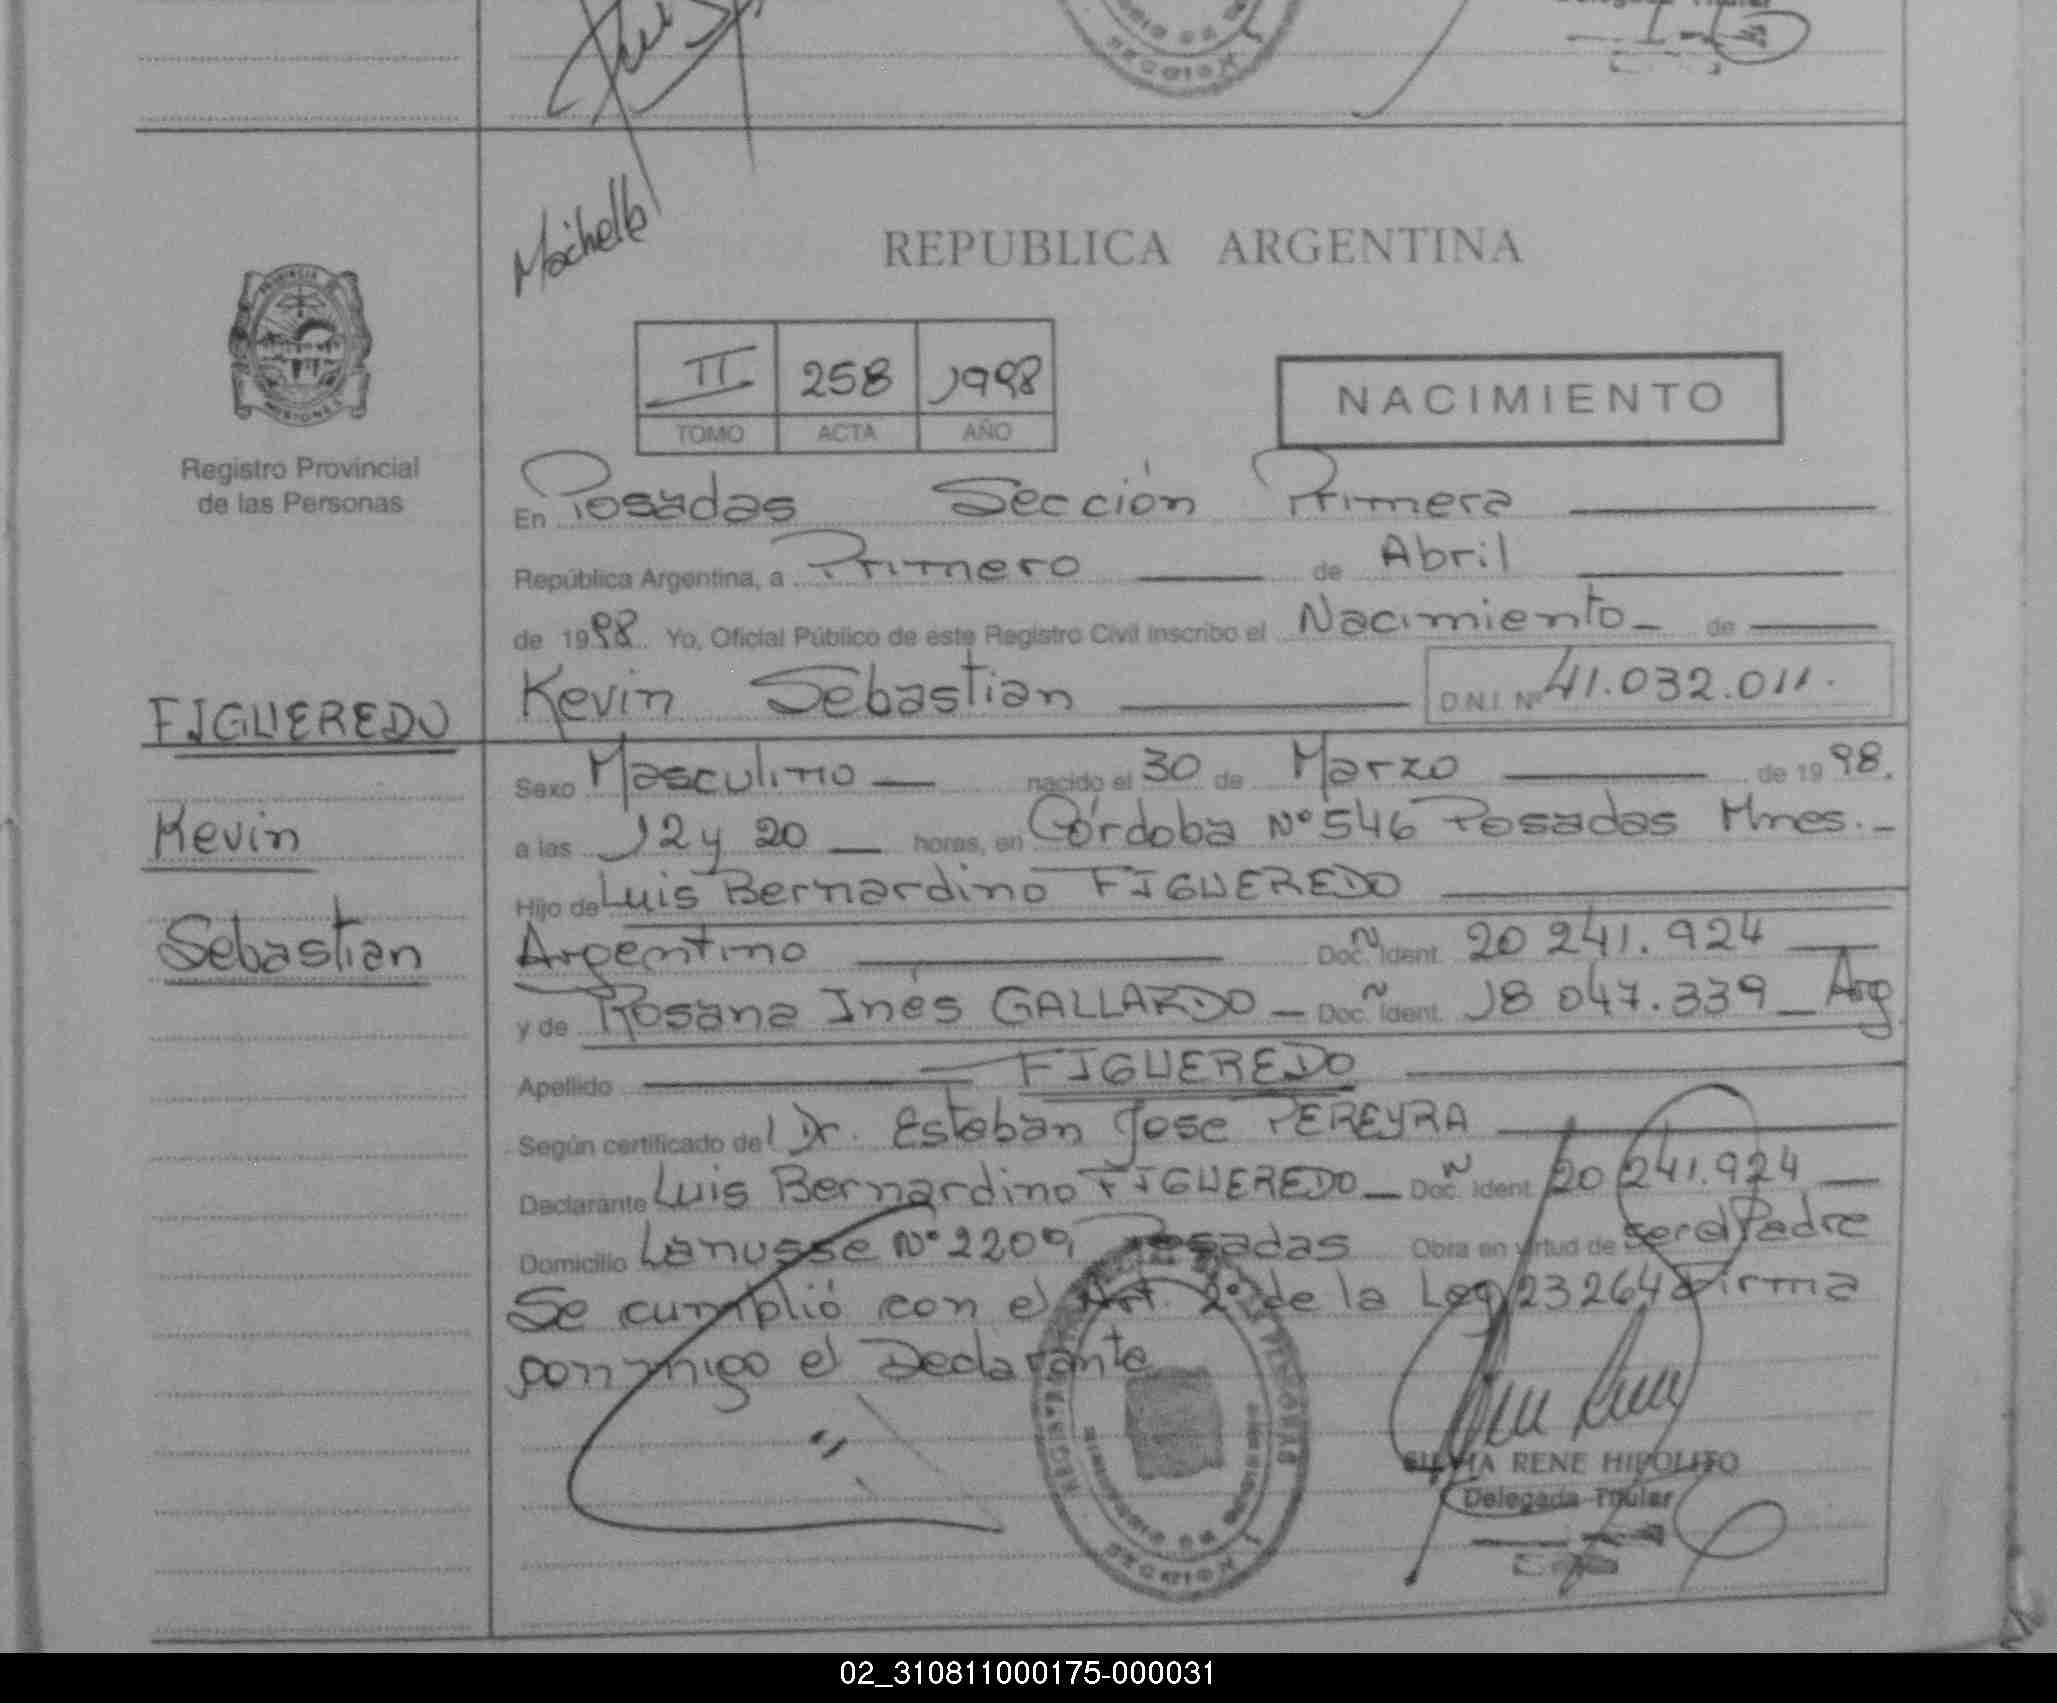 Machelle
REPUBLICA ARGENTINA
II 258 1998
TOMO ACTA AÑO
NACIMIENTO
PROVINCIA
MISIONES
Registro Provincial
de las Personas
En Posadas Sección Primera
República Argentina, a Primero de Abril
de 1998 Yo, Oficial Público de este Registro Civil inscribo el Nacimiento de
FIGUEREDO
Kevin Sebastian D.N.I. Nº 41.032.011.
Kevin
Sebastian
Sexo Masculino nacido el 30 de Marzo de 1998.
a las 12 y 20 horas, en Córdoba Nº 546 Posadas Mnes.
Hijo de Luis Bernardino FIGUEREDO
Argentino Doc. Ident. 20 241.924
y de Rosana Inés GALLARDO Doc. Ident. 18 047.339 Arg
Apellido FIGUEREDO
Según certificado del Dr. Esteban Jose PEREYRA
Declarante Luis Bernardino FIGUEREDO Doc. Ident. 20 241.924
Domicilio Lanusse Nº 2209 Posadas Obra en virtud de ser el Padre
Se cumplió con el Art. 2º de la Ley 23264 Firma
conmigo el Declarante
SILVIA RENE HIPOLITO
Delegada Titular
02_310811000175-000031